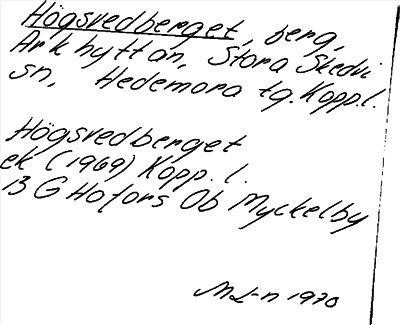 Högsvedberget, berg,
Arkhyttan, Stora Skedvi
sn, Hedemora tg. Kopp.l.
Högsvedberget
ek (1969) Kopp. l.
13 G Hofors Ob Myckelby
M L-n 1970